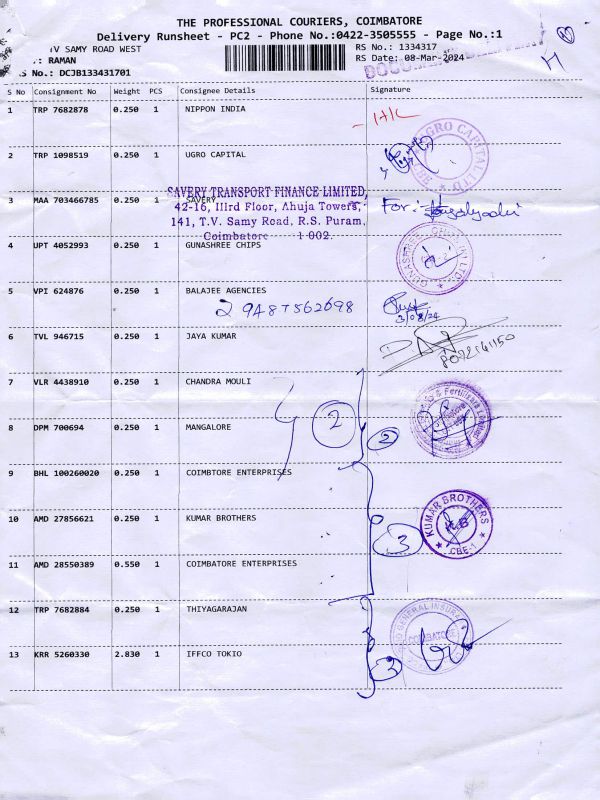 THE PROFESSIONAL COURIERS, COIMBATORE
Delivery Runsheet - PC2 - Phone No.:0422-3505555 - Page No.:1
TV SAMY ROAD WEST RS No.: 1334317
: RAMAN RS Date: 08-Mar-2024
S No.: DCJB133431701
S No Consignment No Weight PCS Consignee Details Signature
1 TRP 7682878 0.250 1 NIPPON INDIA
2 TRP 1098519 0.250 1 UGRO CAPITAL
UGRO CAPITAL LTD
3 MAA 703466785 0.250 1 SAVERY
SAVERY TRANSPORT FINANCE LIMITED,
42-16, IIIrd Floor, Ahuja Towers,
141, T.V. Samy Road, R.S. Puram,
Coimbatore 1 002.
For:
4 UPT 4052993 0.250 1 GUNASHREE CHIPS
5 VPI 624876 0.250 1 BALAJEE AGENCIES
9487562698
6 TVL 946715 0.250 1 JAYA KUMAR
7 VLR 4438910 0.250 1 CHANDRA MOULI
8 DPM 700694 0.250 1 MANGALORE
2 2
& Fertilizers Limited
9 BHL 100260020 0.250 1 COIMBTORE ENTERPRISES
10 AMD 27856621 0.250 1 KUMAR BROTHERS
3
KUMAR BROTHERS
K.B
CBE-1
11 AMD 28550389 0.550 1 COIMBATORE ENTERPRISES
12 TRP 7682884 0.250 1 THIYAGARAJAN
GENERAL INSURA
COIMBATORE
13 KRR 5260330 2.830 1 IFFCO TOKIO